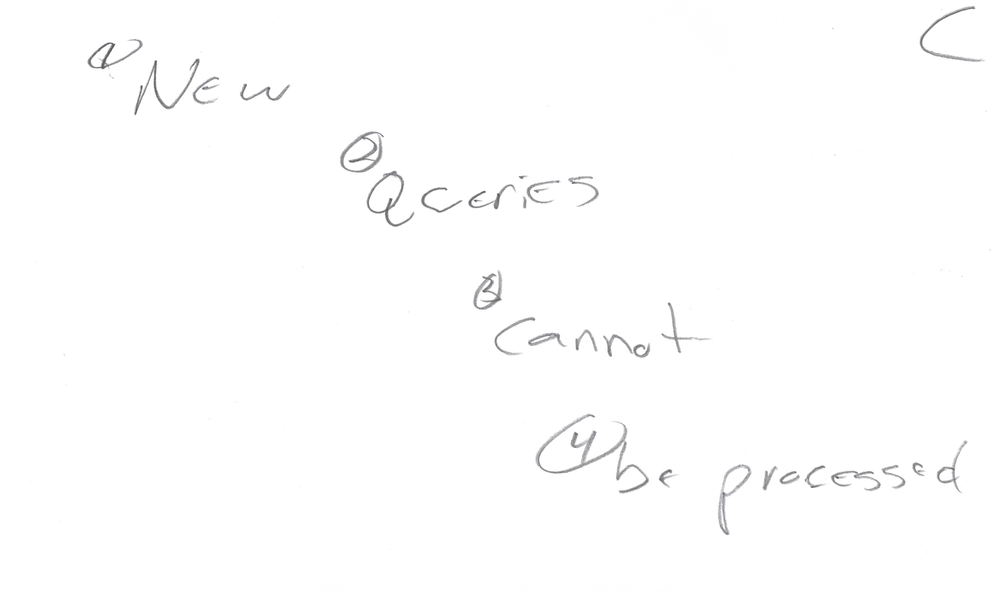 ① New
② Queries
③ cannot
④ be processed